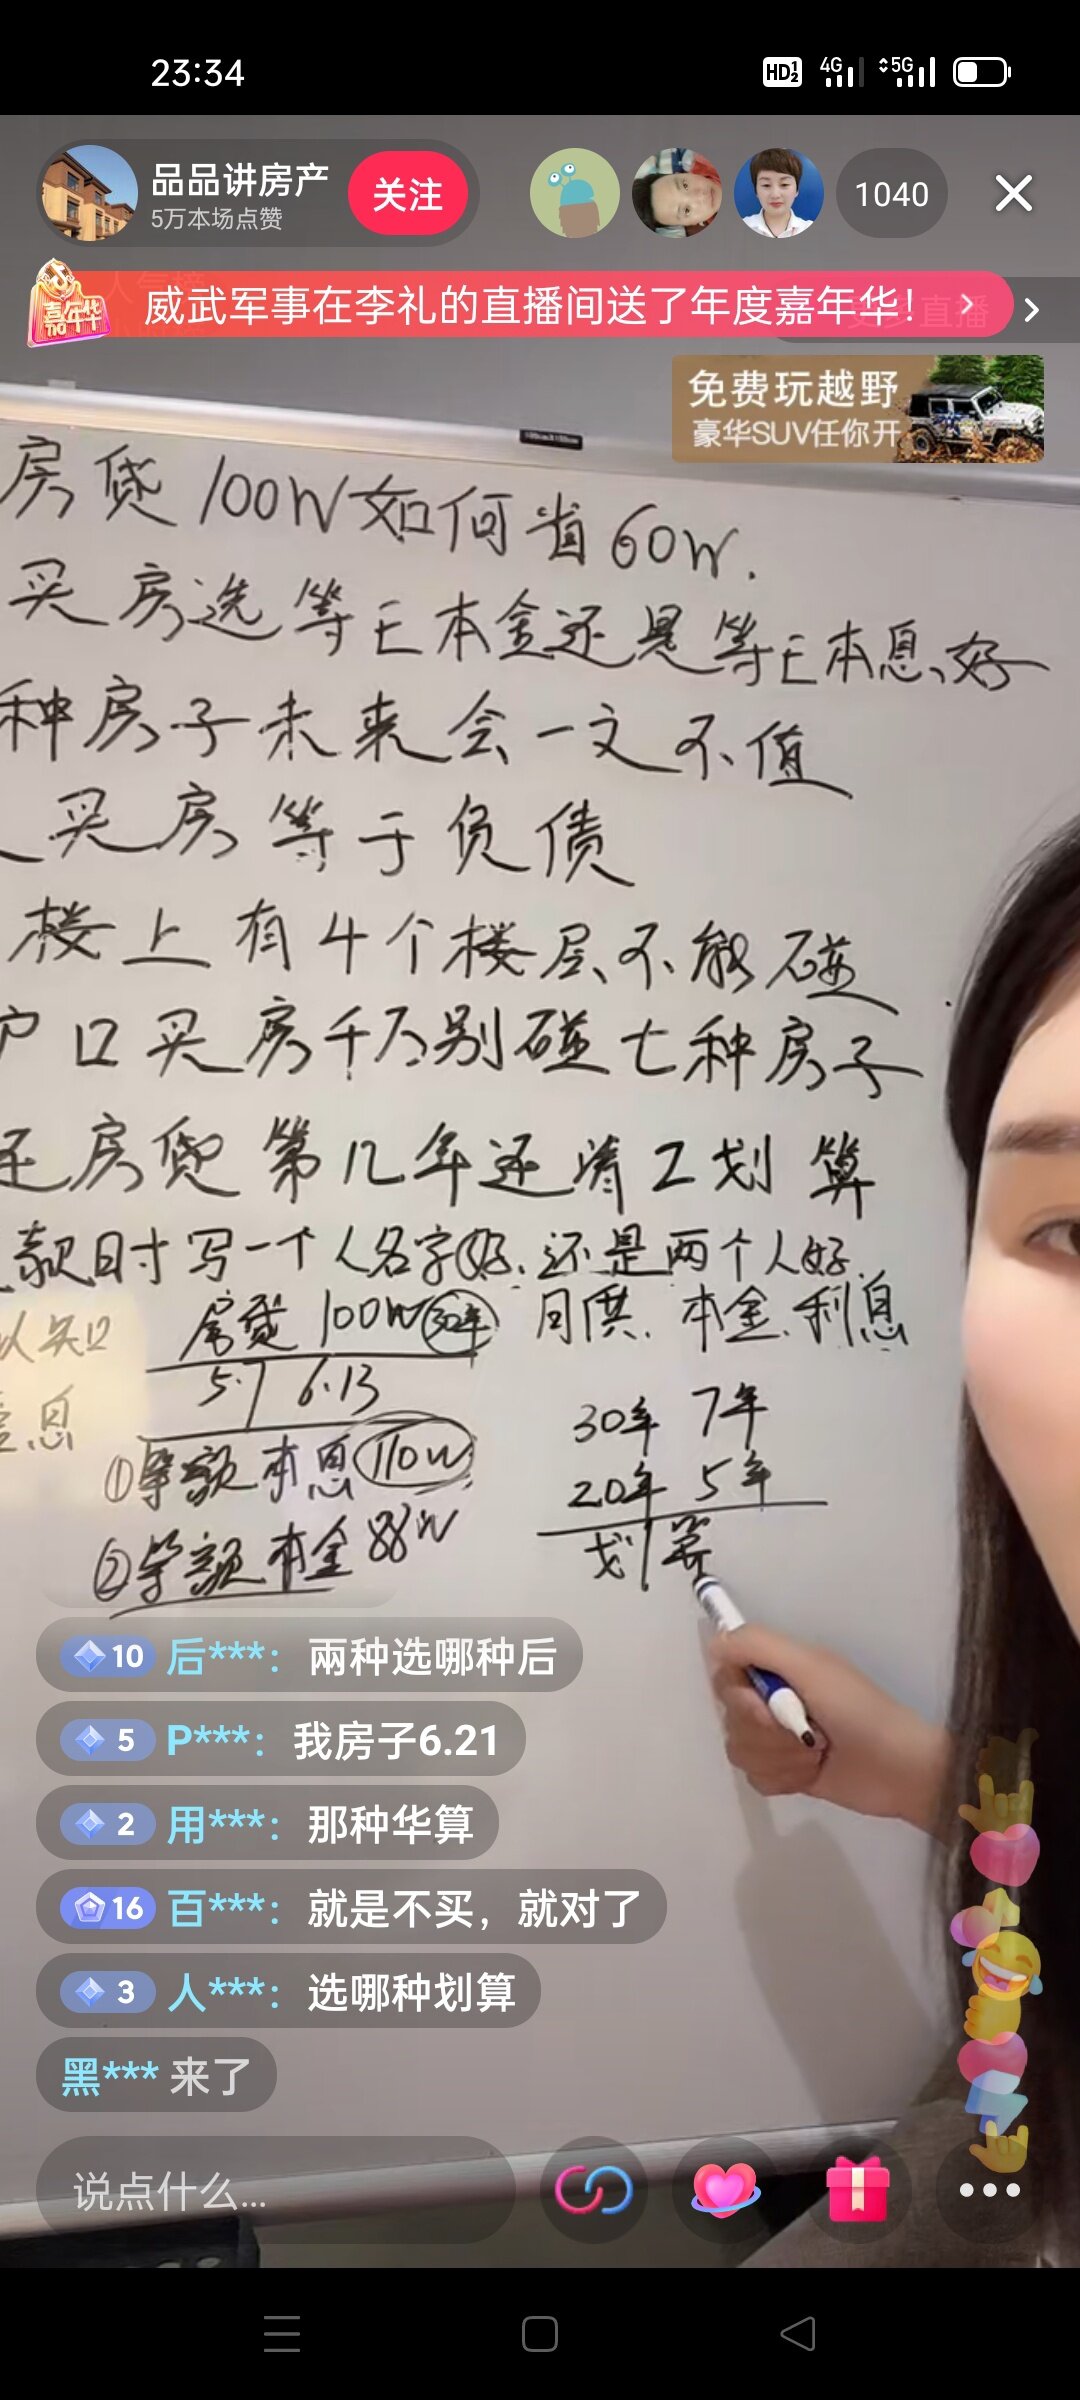 23:34
HD 1 2
4G
5G
品品讲房产
5万本场点赞
关注
1040
威武军事在李礼的直播间送了年度嘉年华！
嘉年华
更多直播
免费玩越野
豪华SUV任你开
房贷100W如何省60W.
买房选等E本金还是等E本息好
种房子未来会一文不值
买房等于负债
楼上有4个楼层不能碰
户口买房千万别碰七种房子
还房贷第几年还清工划算
款时写一个人名字好.还是两个人好
房贷100W 30年 月供.本金.利息
5.7 6.13
30年 7年
①等额本息 110W
20年 5年
②等额本金 88W
划算
10 后***： 兩种选哪种后
5 P***： 我房子6.21
2 用***： 那种华算
16 百***： 就是不买，就对了
3 人***： 选哪种划算
黑*** 来了
说点什么...